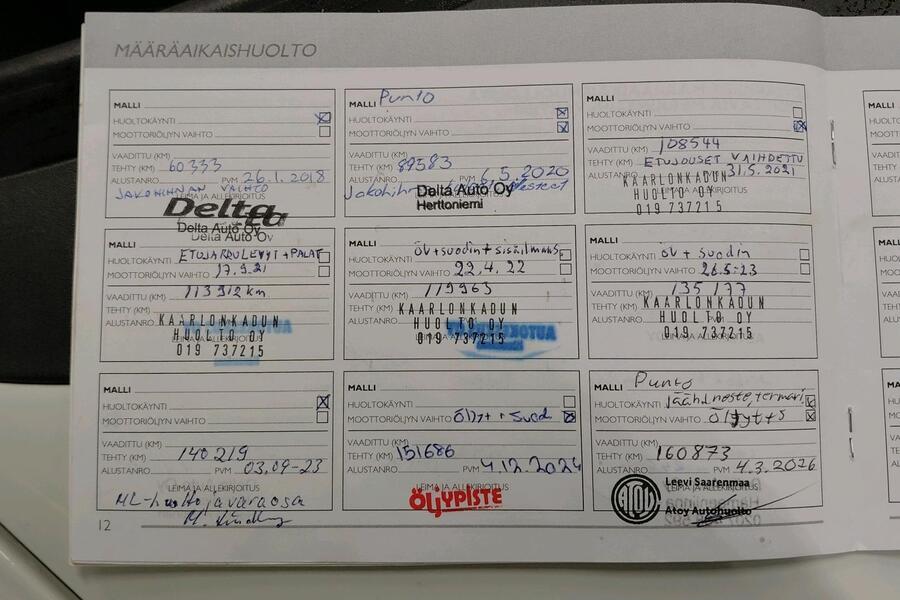 MÄÄRÄAIKAISHUOLTO
MALLI
HUOLTOKÄYNTI
MOOTTORIÖLJYN VAIHTO
VAADITTU (KM)
TEHTY (KM) 60333
ALUSTANRO PVM 26.1.2018
JAKOHIHNAN VAIHTO
LEIMA JA ALLEKIRJOITUS
Delta
Delta Auto Oy
Delta Auto Oy
MALLI Punto
HUOLTOKÄYNTI
MOOTTORIÖLJYN VAIHTO
VAADITTU (KM)
TEHTY (KM) 89583
ALUSTANRO PVM 6.5.2020
Delta Auto Oy
Herttoniemi
MALLI
HUOLTOKÄYNTI
MOOTTORIÖLJYN VAIHTO
VAADITTU (KM) 108544
TEHTY (KM) ETUJOUSET VAIHDETTU
ALUSTANRO 31.5.2021
KAARLONKADUN
HUOLTO OY
019 737215
MALLI
HUOLTOKÄYNTI ETUJARRULEVYT + PALAT
MOOTTORIÖLJYN VAIHTO 17.9.21
VAADITTU (KM) 113912 km
TEHTY (KM)
ALUSTANRO KAARLONKADUN
HUOLTO OY
019 737215
MALLI
HUOLTOKÄYNTI öl+suodin+sisäilmans.
MOOTTORIÖLJYN VAIHTO 22.4.22
VAADITTU (KM) 119963
TEHTY (KM) KAARLONKADUN
ALUSTANRO HUOLTO OY
019 737215
MALLI
HUOLTOKÄYNTI öl + suodin
MOOTTORIÖLJYN VAIHTO 26.5.23
VAADITTU (KM) 135177
TEHTY (KM) KAARLONKADUN
ALUSTANRO HUOLTO OY
019 737215
MALLI
HUOLTOKÄYNTI
MOOTTORIÖLJYN VAIHTO
VAADITTU (KM)
TEHTY (KM) 140219
ALUSTANRO PVM 03.09-23
LEIMA JA ALLEKIRJOITUS
ML-huolto ja varaosa
MALLI
HUOLTOKÄYNTI
MOOTTORIÖLJYN VAIHTO Öljy + Suod
VAADITTU (KM)
TEHTY (KM) 151686
ALUSTANRO PVM 4.12.2024
LEIMA JA ALLEKIRJOITUS
ÖLJYPISTE
MALLI Punto
HUOLTOKÄYNTI Jäähd.neste, termari
MOOTTORIÖLJYN VAIHTO Öljyt+s
VAADITTU (KM)
TEHTY (KM) 160873
ALUSTANRO PVM 4.3.2026
LEIMA JA ALLEKIRJOITUS
ATOY
Leevi Saarenmaa
Atoy Autohuolto
12